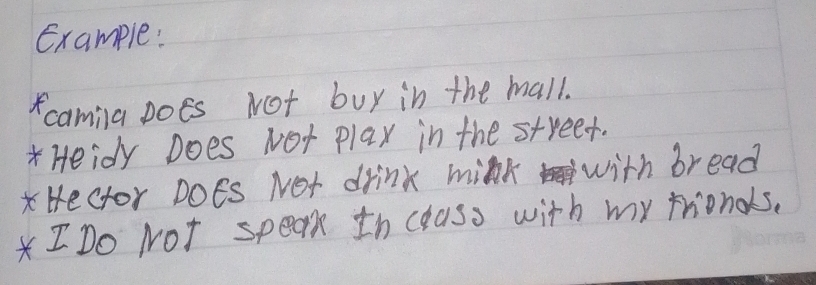 Example:
*camila DOES Not buy in the mall.
*Heidy Does Not play in the street.
*Hector DOES Not drink milk with bread
*I Do NOT speak In class with my friends.
Norma